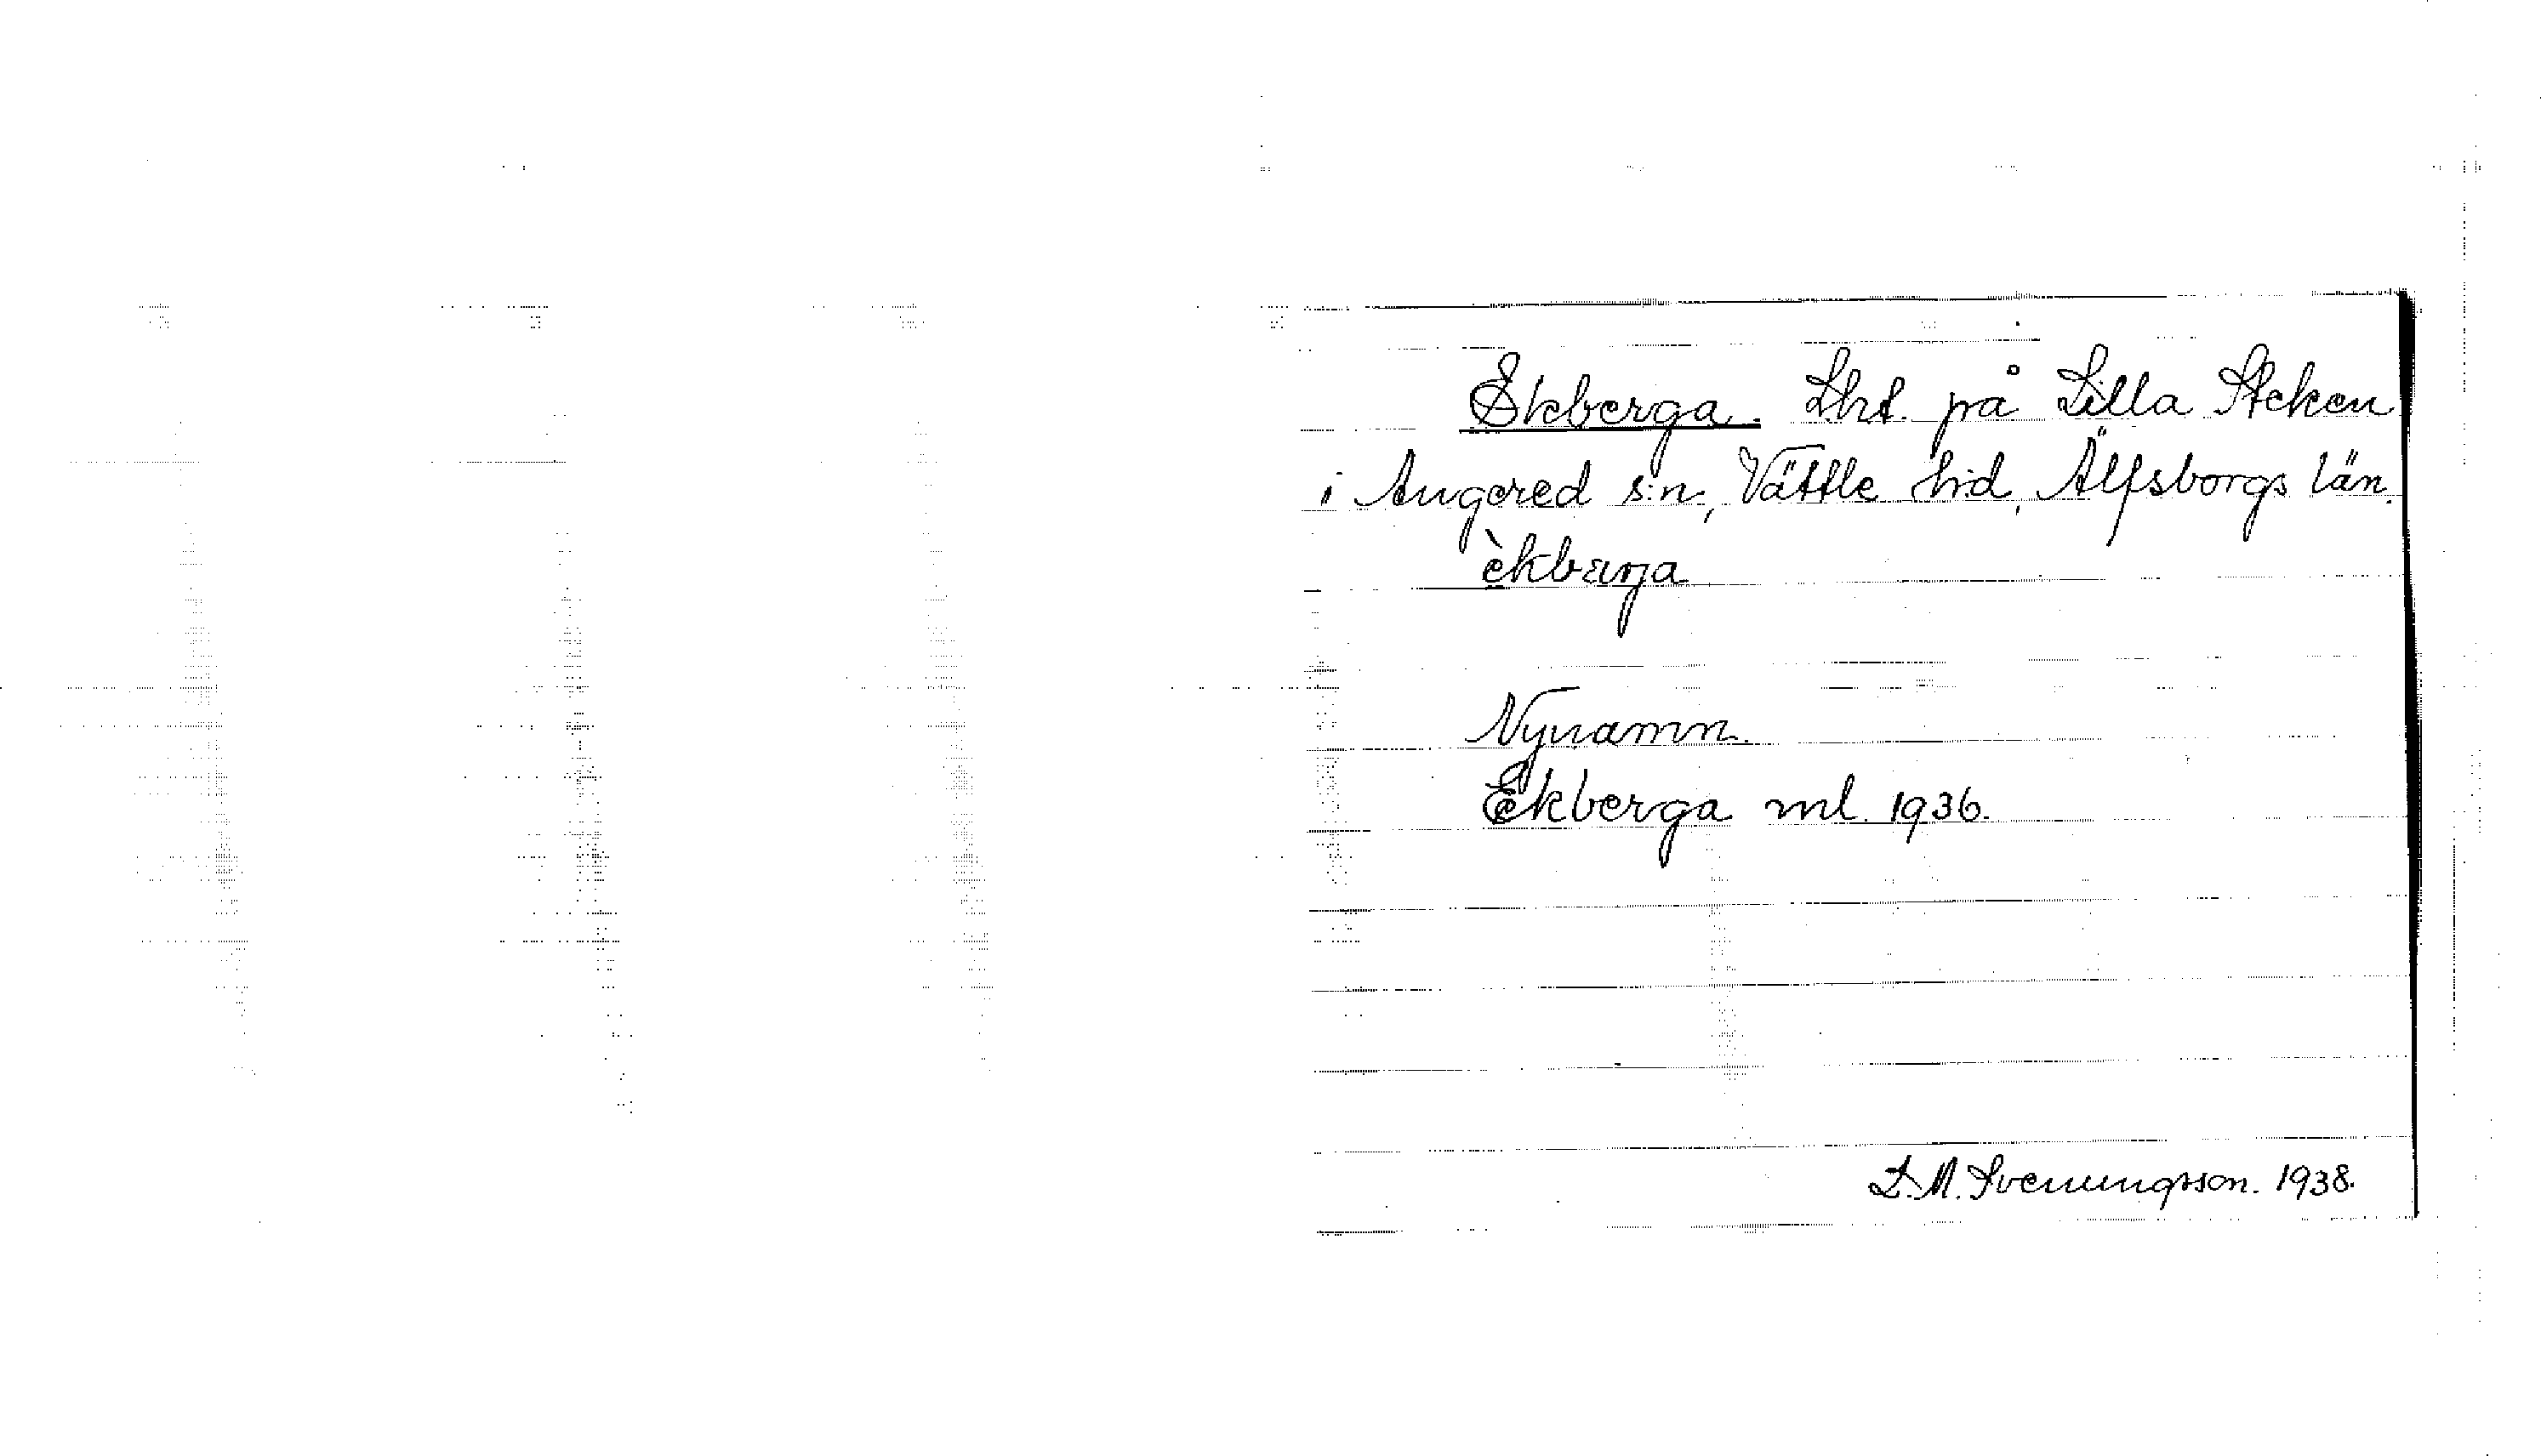 Ekberga. Lht. på Lilla Steken
i Angered s:n, Vättle hd, Älfsborgs län.
èkbærja
Nynamn.
Ekberga ml. 1936.
L. M. Svenungsson. 1938.